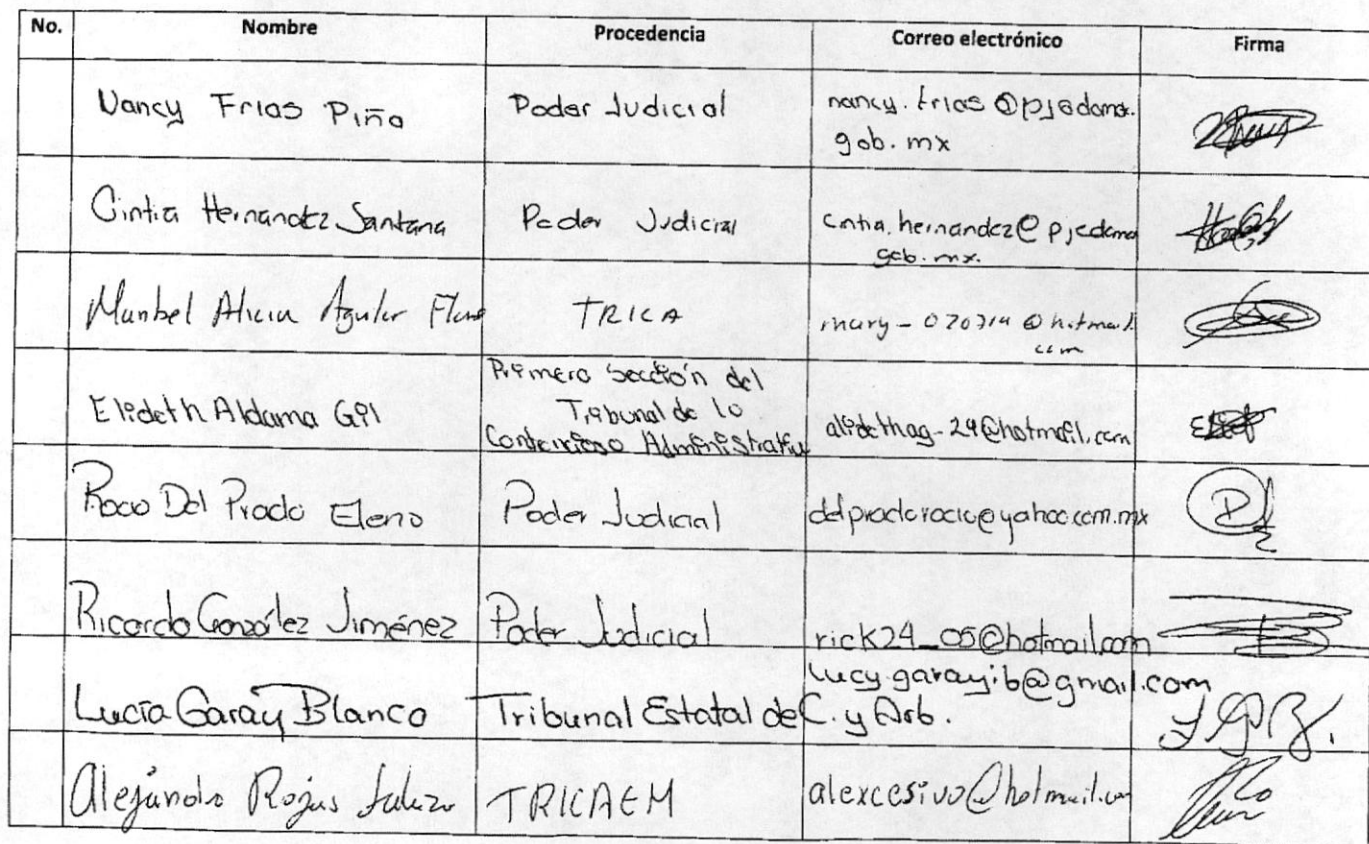 No. Nombre Procedencia Correo electrónico Firma
Nancy Frias Piña Poder Judicial nancy.frias@pjedomex.
gob.mx
Cintia Hernandez Santana Poder Judicial cintia.hernandez@pjedomex
gob.mx.
Alicia Aguilar TRICA
Primera Sección del
Elideth Aldama Gil Tribunal de lo
Contencioso Administrativo alidethag-24@hotmail.com
Rocio Del Prado Eleno Poder Judicial delpradorocio@yahoo.com.mx
Ricardo González Jiménez Poder Judicial rick24_05@hotmail.com
lucy.garayib@gmail.com
Lucía Garay Blanco Tribunal Estatal de C. y Arb.
Alejandro Rojas TRICAEM alexcesivo@hotmail.com